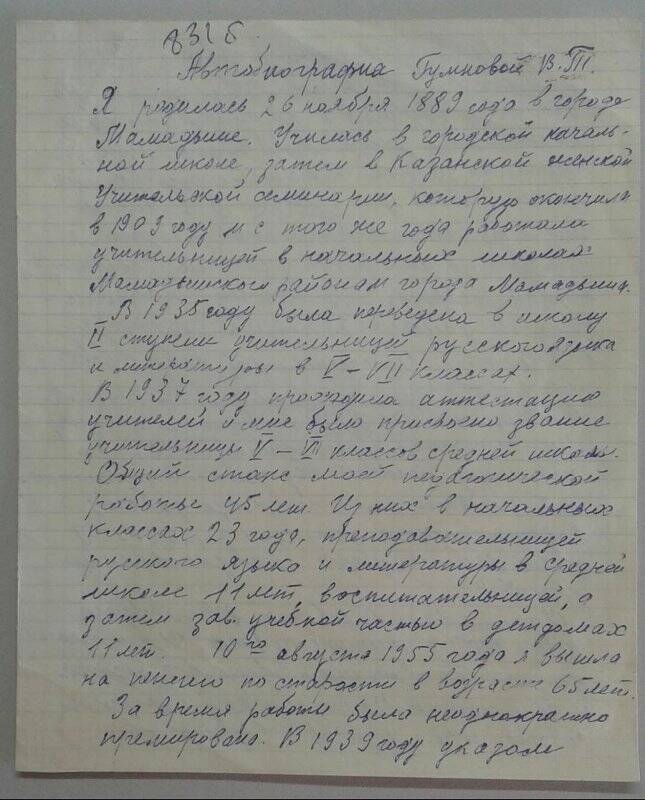 8316
Автобиография Гумновой В. П.
Я родилась 26 ноября 1889 года в городе
Мамадыше. Училась в городской началь-
ной школе, затем в Казанской женской
учительской семинарии, которую окончила
в 1909 году и с того же года работала
учительницей в начальных школах
Мамадышского района и города Мамадыша.
В 1935 году была переведена в школу
II ступени учительницей русского языка
и литературы в V – VII классах.
В 1937 году проходила аттестацию
учителей и мне было присвоено звание
учительницы V – VII классов средней школы.
Общий стаж моей педагогической
работы 45 лет. Из них в начальных
классах 23 года, преподавательницей
русского языка и литературы в средней
школе 11 лет, воспитательницей, а
затем зав. учебной частью в детдомах
11 лет. 10го августа 1955 года я вышла
на пенсию по старости в возрасте 65 лет.
За время работы была неоднократно
премирована. В 1939 году указом